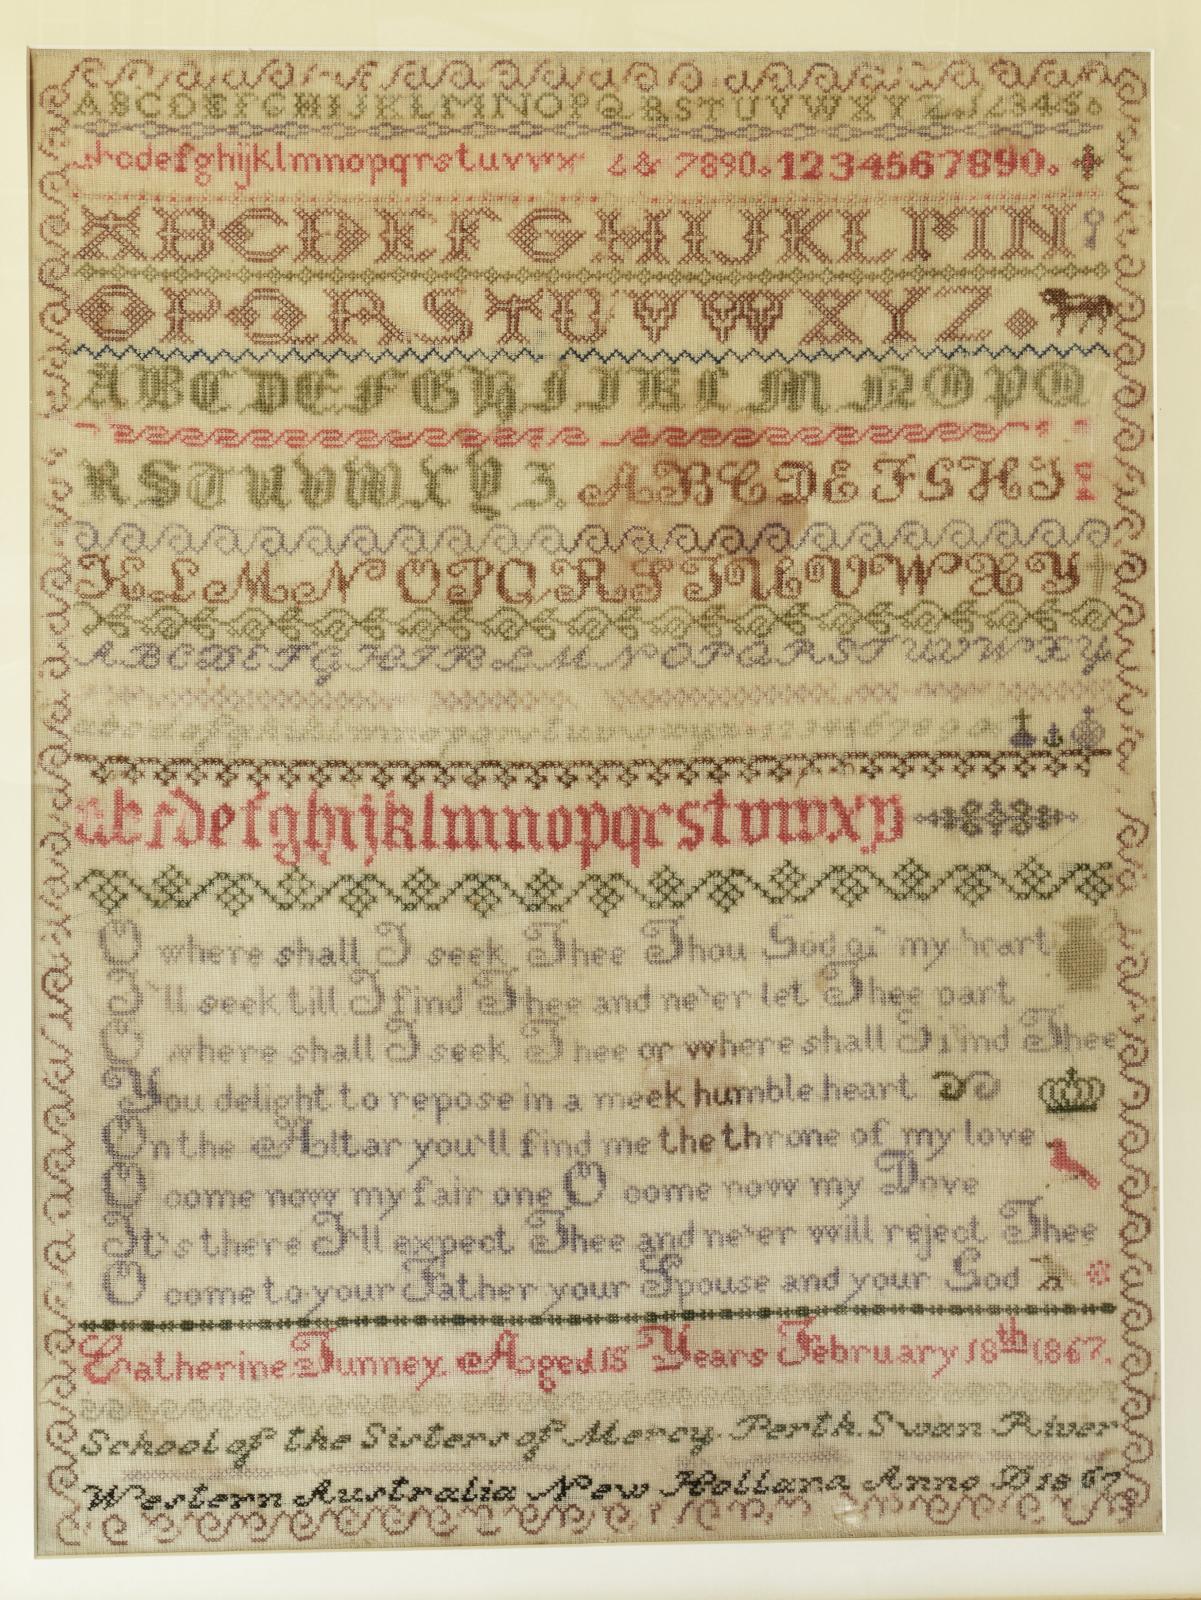 ABCDEFGHIJKLMNOPQRSTUVWXYZ.123456
abcdefghijklmnopqrstuvwx z& 7890.1234567890.
ABCDEFGHIJKLMN
OPQRSTUVWXYZ.
ABCDEFGHIJKLMNOPQ
RSTUVWXYZ. ABCDEFGHI
KLMNOPQRSTUVWXY
ABCDEFGHIKLMNOPQRSTUVWXY
abcdefghiklmnopqrstuvwxyz
abcdefghijklmnopqrstuvwxy
O where shall I seek Thee Thou God of my heart
I'll seek till I find Thee and ne'er let Thee part
O where shall I seek Thee or where shall I find Thee
You delight to repose in a meek humble heart
On the Altar you'll find me the throne of my love
O come now my fair one O come now my Dove
It's there I'll expect Thee and ne'er will reject Thee
O come to your Father your Spouse and your God
Catherine Tunney. Aged 15 Years February 18th 1867.
School of the Sisters of Mercy. Perth. Swan River
Western Australia New Holland Anno D 1867